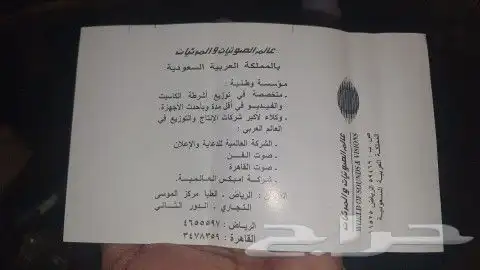 عالم الصوتيات والمرئيات
بالمملكة العربية السعودية
مؤسسة وطنية :
ـ متخصصة في توزيع أشرطة الكاسيت
والفيديو في أقل مدة وبأحدث الأجهزة.
ـ وكلاء لاكبر شركات الإنتاج والتوزيع في
العالم العربي :
ـ الشركة العالمية للدعاية والإعلان
ـ صوت الفن
ـ صوت القاهرة
ـ شركة اميكس العالمية.
: الرياض . العليا مركز الموسى
التجاري . الدور الثاني
الرياض : ٤٦٥٥٥٩٧
القاهرة : ٣٤٧٨٣٥٩
عالم الصوتيات والمرئيات
WORLD OF SOUNDS & VISIONS
ص . ب : ٥٩٤٦٦ الرياض ١١٥٢٥
المملكة العربية السعودية
حراج